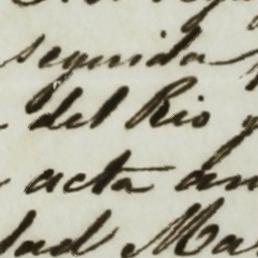 seguida
del Rio y
acta an
dad Ma